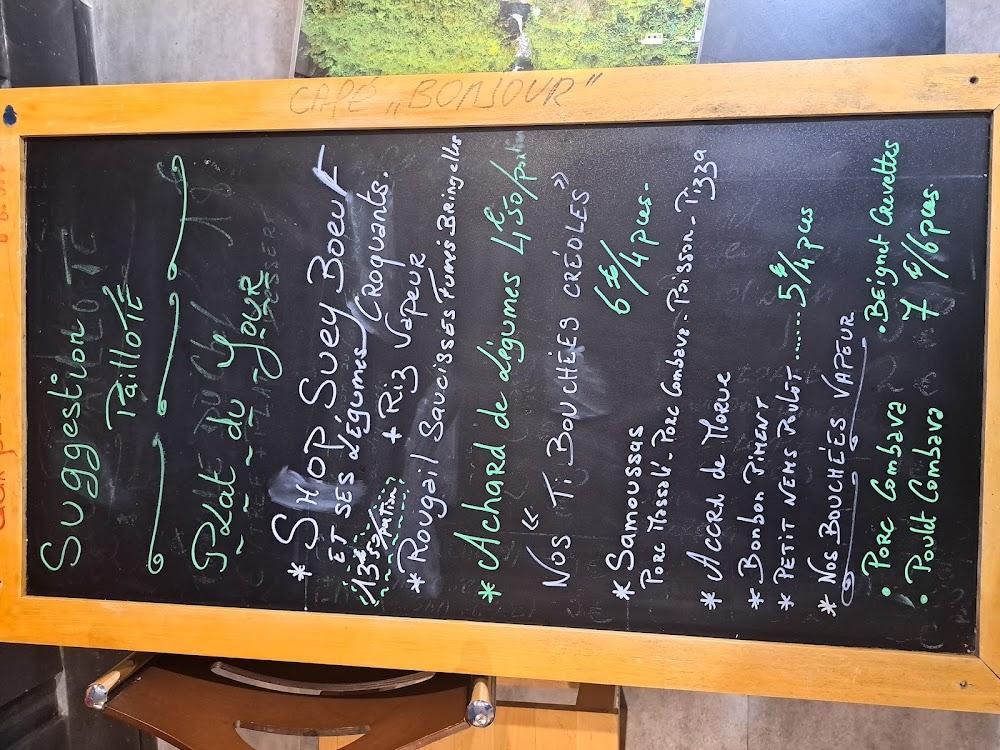 CAFÉ „BONJOUR"
Suggestion
PailloTE
Plat du
Jour
* SHOP SUEY BOEUF
ET SES LÉGUMES CROQUANTS.
13€50/portion + Riz VAPEUR
* Rougail SAUCISSES FUMÉS BRINGELLES
* Achard de légumes 4€50/portion
NOS « TI BOUCHÉES CRÉOLES »
* SAMOUSSAS 6€/4 pces-
PORC MASSALÉ - PORC COMBAVA - POISSON - PIZZA
* ACCRA de MORUE
* Bonbon PIMENT
* PETIT NEMS POULET ...... 5€/4 pces
* NOS BOUCHÉES VAPEUR
• PORC COMBAVA • BEIGNET CREVETTES
• POULET COMBAVA 7€/6 pces.